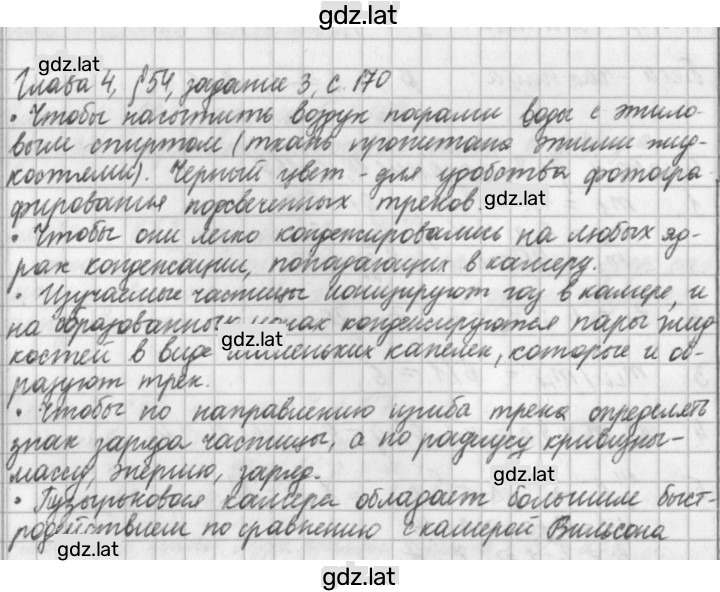 gdz.lat
gdz.lat
Глава 4, §54, задание 3, с. 170
• Чтобы насытить воздух парами воды с этило-
вым спиртом (ткань пропитана этими жид-
костями). Черный цвет - для удобства фотогра
фирования подсвеченных треков. gdz.lat
• Чтобы они легко конденсировались на любых яд-
рах конденсации, попадающих в камеру.
• Изучаемые частицы ионизируют газ в камере, и
на образованных ионах конденсируются пары жид
gdz.lat
костей в виде маленьких капелек, которые и об-
разуют трек.
• Чтобы по направлению изгиба трека определять
знак заряда частицы, а по радиусу кривизны-
массу, энергию, заряд. gdz.lat
• Пузырьковая камера обладает большим быст-
родействием по сравнению с камерой Вильсона
gdz.lat
gdz.lat